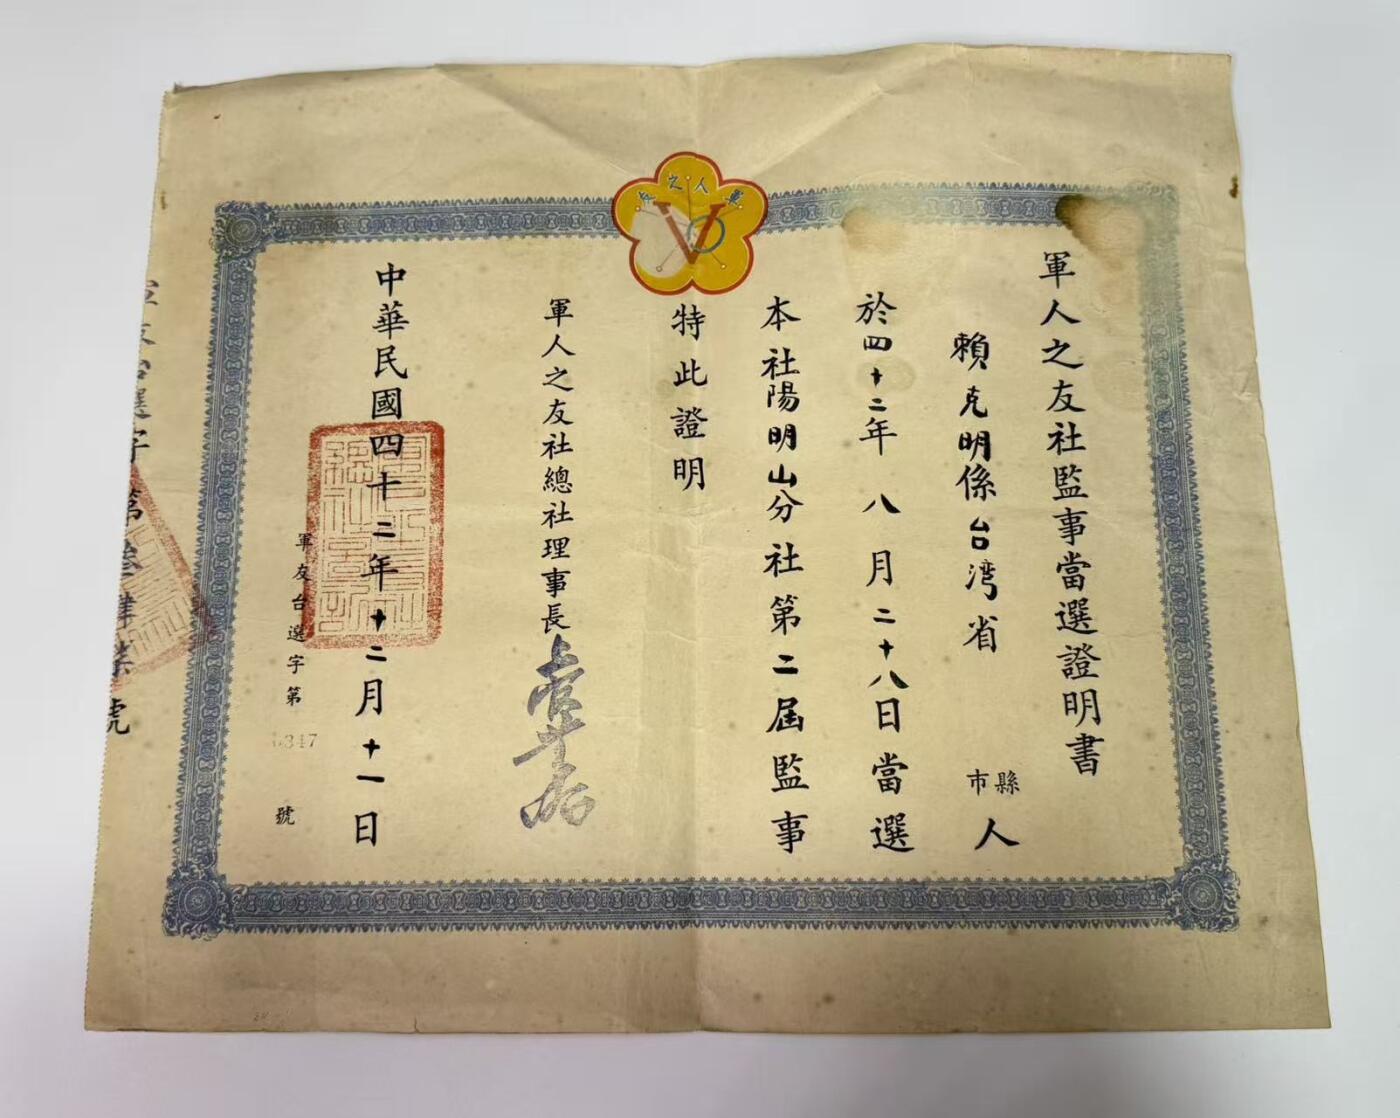 軍人之友
軍人之友社監事當選證明書
賴克明係台湾省 縣市人
於四十二年八月二十八日當選
本社陽明山分社第二屆監事
特此證明
軍人之友社總社理事長
中華民國四十二年十二月十一日
軍友台選字第 347 號
選字第叁肆柒號